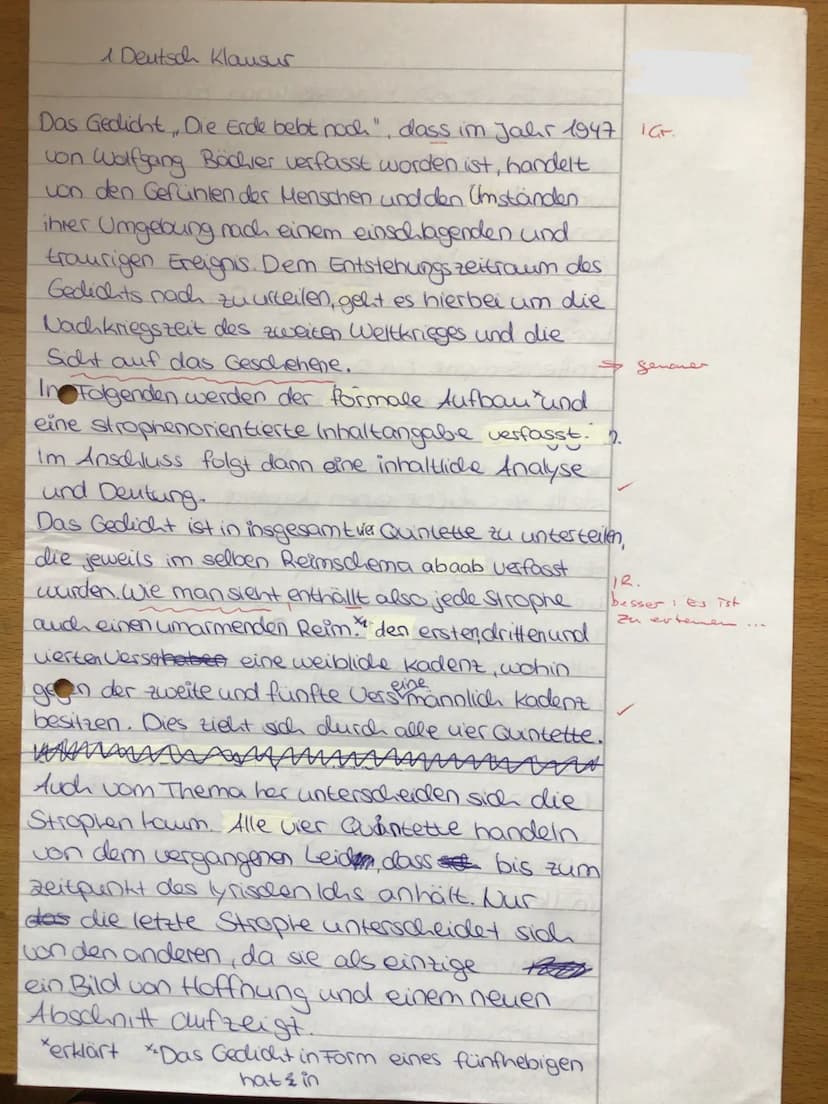 1 Deutsch Klausur
Das Gedicht „Die Erde bebt noch“, dass im Jahr 1947 | Gr.
von Wolfgang Bächler verfasst worden ist, handelt
von den Gefühlen der Menschen und den Umständen
ihrer Umgebung nach einem einschlagenden und
traurigen Ereignis. Dem Entstehungszeitraum des
Gedichts nach zu urteilen, geht es hierbei um die
Nachkriegszeit des zweiten Weltkrieges und die
Sicht auf das Geschehene. → genauer
Im Folgenden werden der formale Aufbau* und
eine strophenorientierte Inhaltangabe verfasst.
Im Anschluss folgt dann eine inhaltliche Analyse
und Deutung. ✓
Das Gedicht ist in insgesamt vier Quintette zu unterteilen,
die jeweils im selben Reimschema abaab verfasst
wurden. Wie man sieht, enthällt also jede Strophe | R. besser: Es ist
auch einen umarmenden Reim.* den ersten, dritten und zu erkennen ...
vierten Vers eine weibliche Kadenz, wohin
gegen der zweite und fünfte Vers eine männlich Kadenz
besitzen. Dies zieht sich durch alle vier Quintette. ✓
Auch vom Thema her unterscheiden sich die
Strophen kaum. Alle vier Quintette handeln
von dem vergangenen Leiden, dass bis zum
zeitpunkt des lyrischen Ichs anhält. Nur
die letzte Strophe unterscheidet sich
von den anderen, da sie als einzige
ein Bild von Hoffnung und einem neuen
Abschnitt aufzeigt.
*erklärt *Das Gedicht in Form eines fünfhebigen
hat in